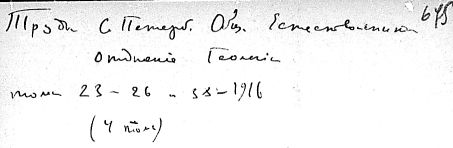 Труды С. Петерб. Общ. Естествоиспыт 645
Отделение Геологии
томы 23-26 и 38-1916
(4 тома)